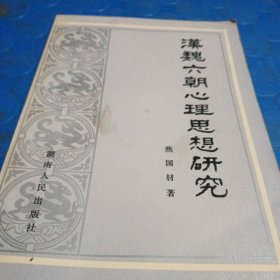 漢魏六朝心理思想研究
燕国材著
湖南人民出版社